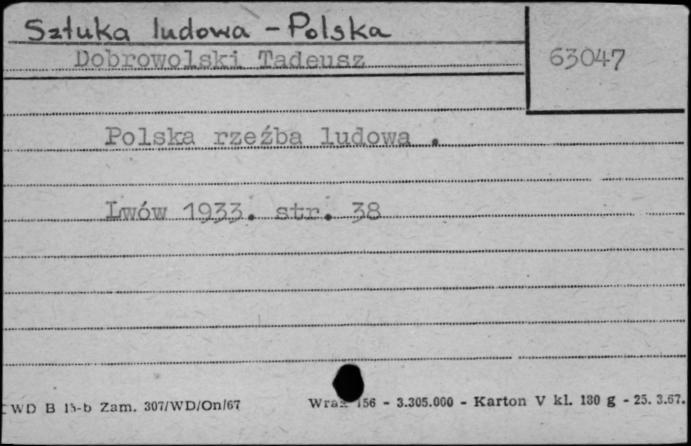 Sztuka ludowa - Polska
Dobrowolski Tadeusz
63047
Polska rzeźba ludowa .
Lwów 1933. str. 38
WD B 15-b Zam. 307/WD/On/67 156 - 3.305.000 - Karton V kl. 180 g - 25. 3.67.